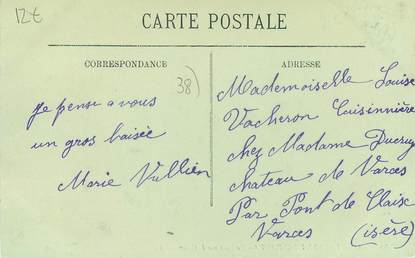 12€
CARTE POSTALE
CORRESPONDANCE
ADRESSE
38)
je pense a vous
un gros baisée
Marie Vallien
Mademoiselle Louise
Vacheron Cuisinnière
chez Madame Ducruy
chateau de Varces
Par Pont de Claix
Varces (isère)